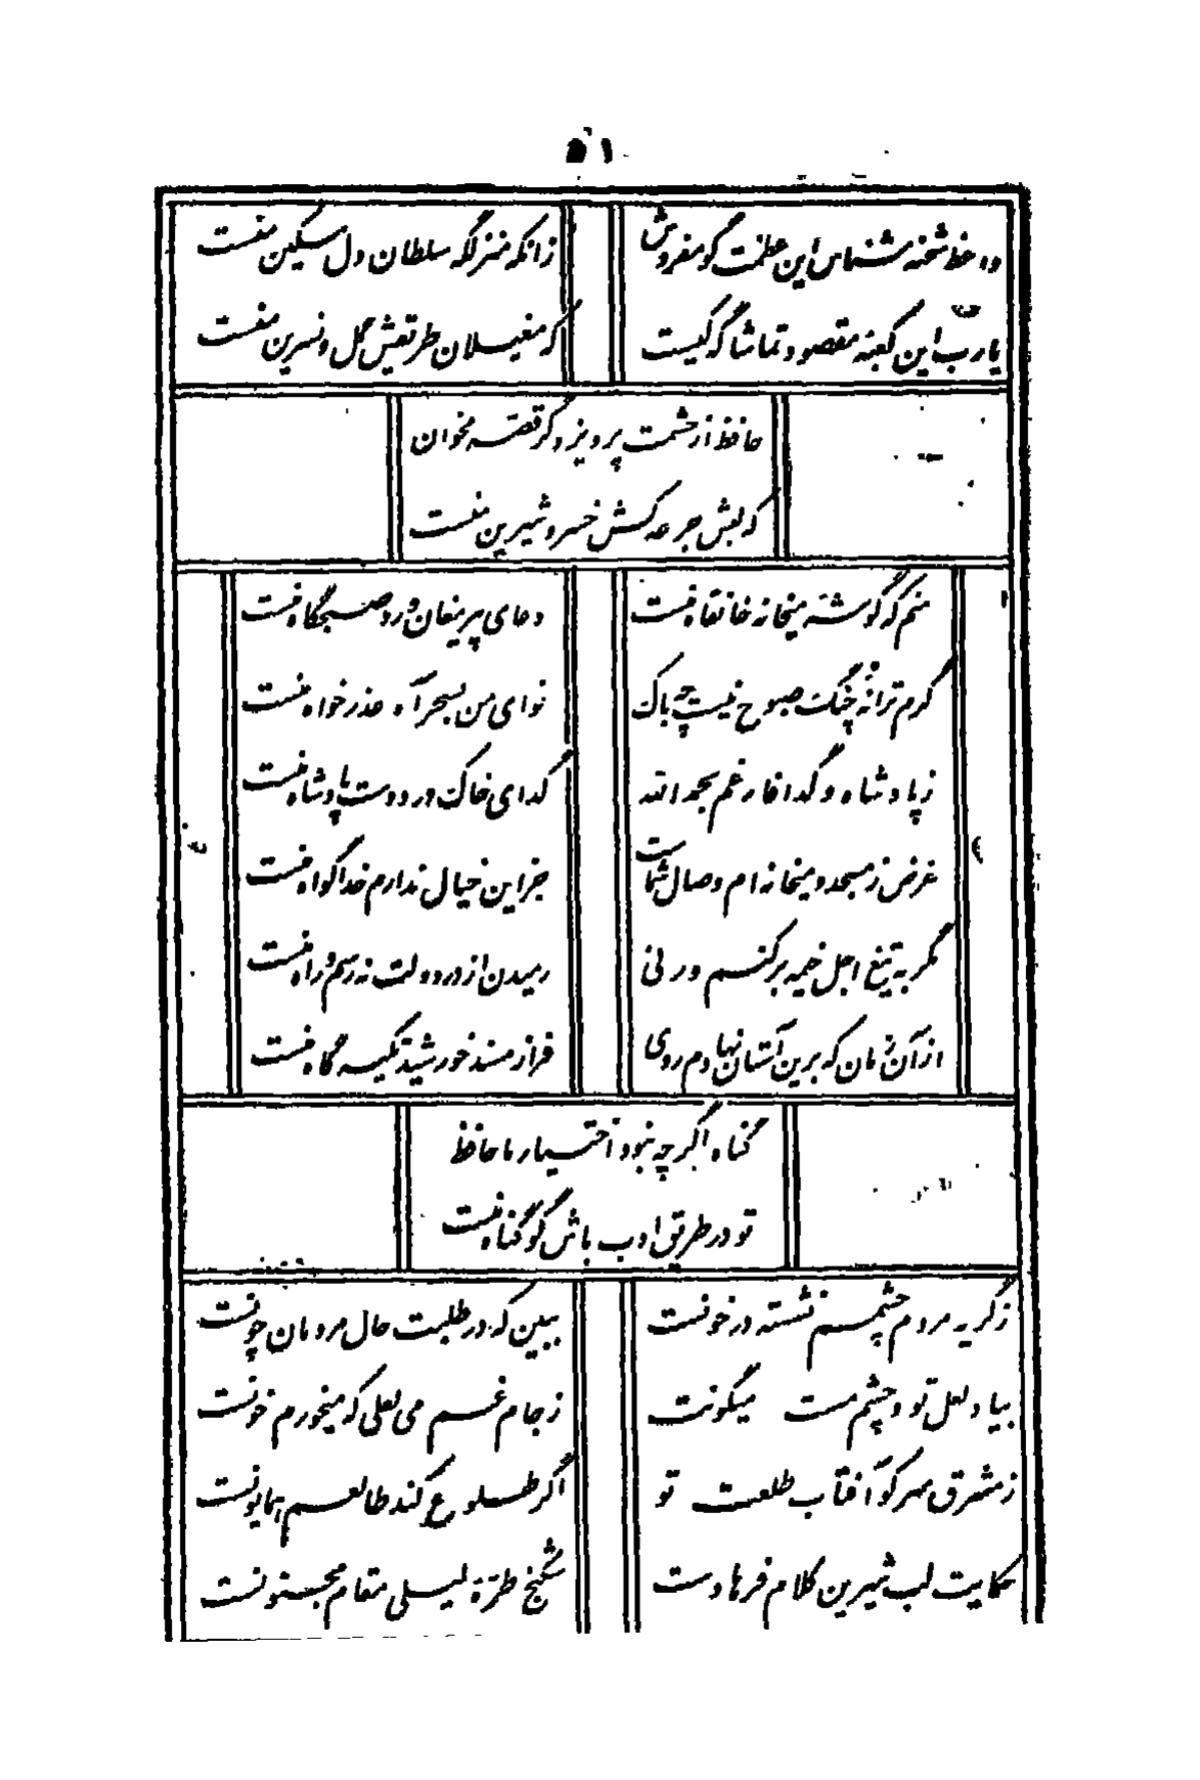 ٥١
واعظ شحنه شناس این عظمت گو مفروش
زانکه منزلگه سلطان دل مسکین منست
یارب این کعبه مقصود تماشاگه کیست
که مغیلان طریقش گل و نسرین منست
حافظ از حشمت پرویز دگر قصه مخوان
که لبش جرعه کش خسرو شیرین منست
منم که گوشه میخانه خانقاه منست
دعای پیر مغان ورد صبحگاه منست
گرم ترانه چنگ صبوح نیست چه باک
نوای من بسحر آه عذر خواه منست
ز پادشاه و گدا فارغم بحمد الله
گدای خاک در دوست پادشاه منست
غرض ز مسجد و میخانه ام وصال شماست
جز این خیال ندارم خدا گواه منست
مگر به تیغ اجل خیمه برکنم ورنی
رمیدن از در دولت نه رسم و راه منست
از آن زمان که برین آستان نهادم روی
فراز مسند خورشید تکیه گاه منست
گناه اگرچه نبود اختیار ما حافظ
تو در طریق ادب باش گو گناه منست
ز گریه مردم چشمم نشسته در خونست
ببین که در طلبت حال مردمان چونست
بیاد لعل تو و چشم مست میگونت
ز جام غم می لعلی که میخورم خونست
ز مشرق سر کو آفتاب طلعت تو
اگر طلوع کند طالعم همایونست
حکایت لب شیرین کلام فرهادست
شکنج طره لیلی مقام مجنونست